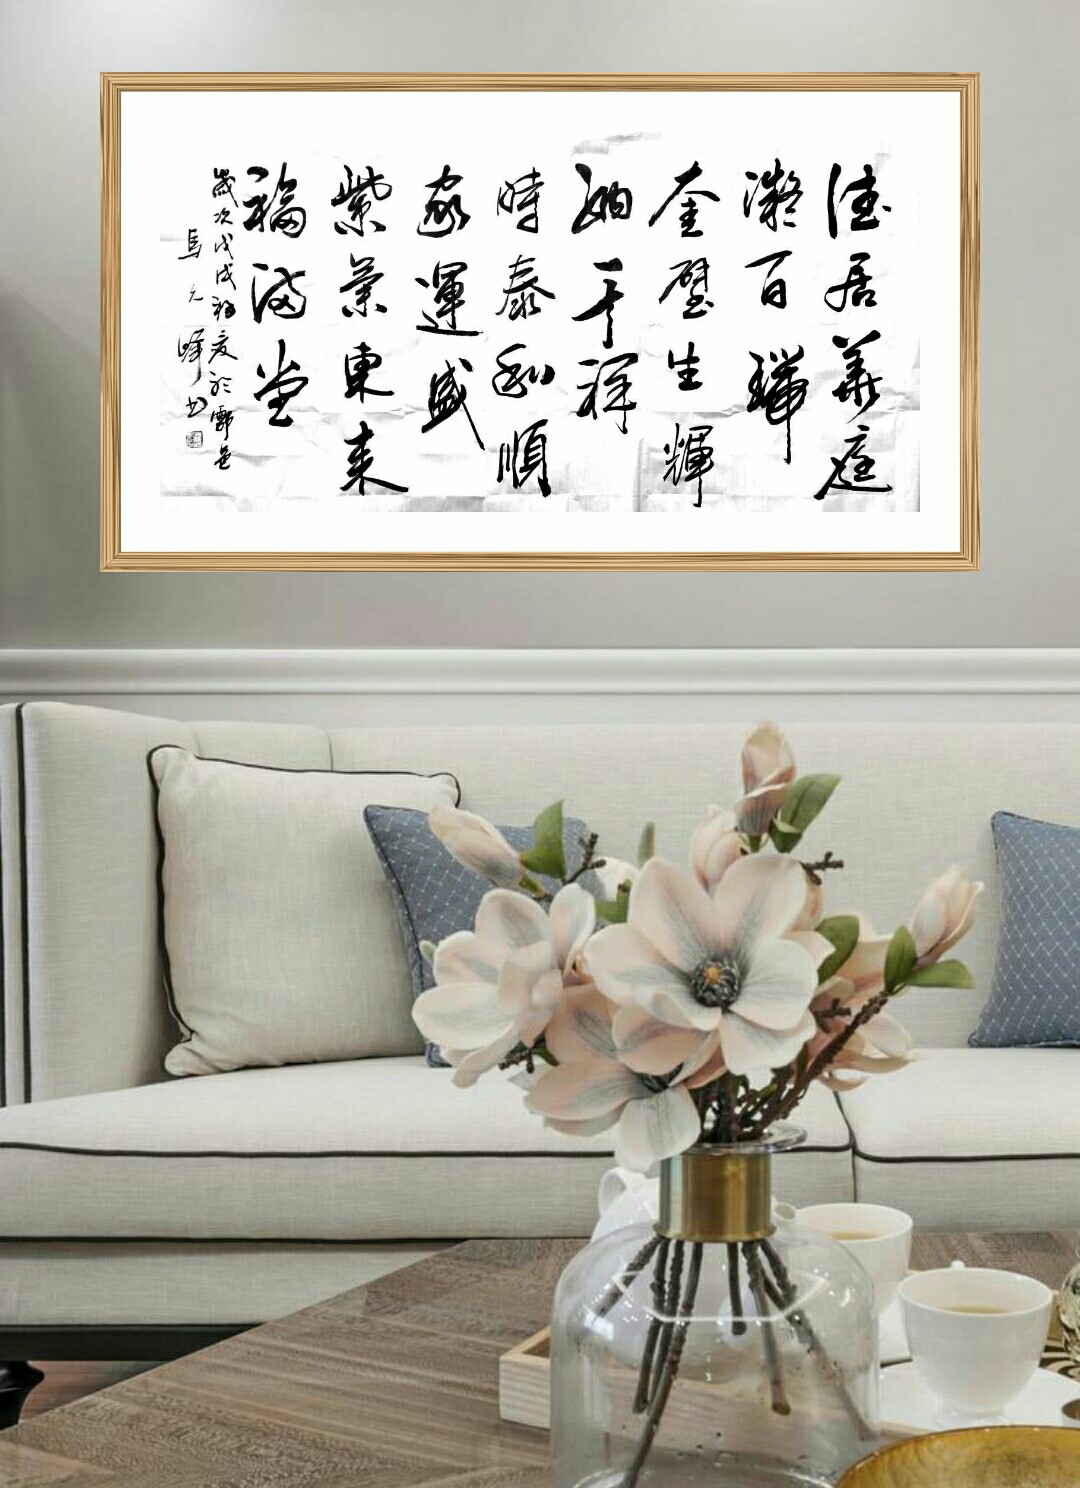 佳居華庭
凝百瑞
奎璧生輝
納千祥
時泰和順
家運盛
紫氣東來
福滿堂
歲次戊戌初夏於鄠邑
馬